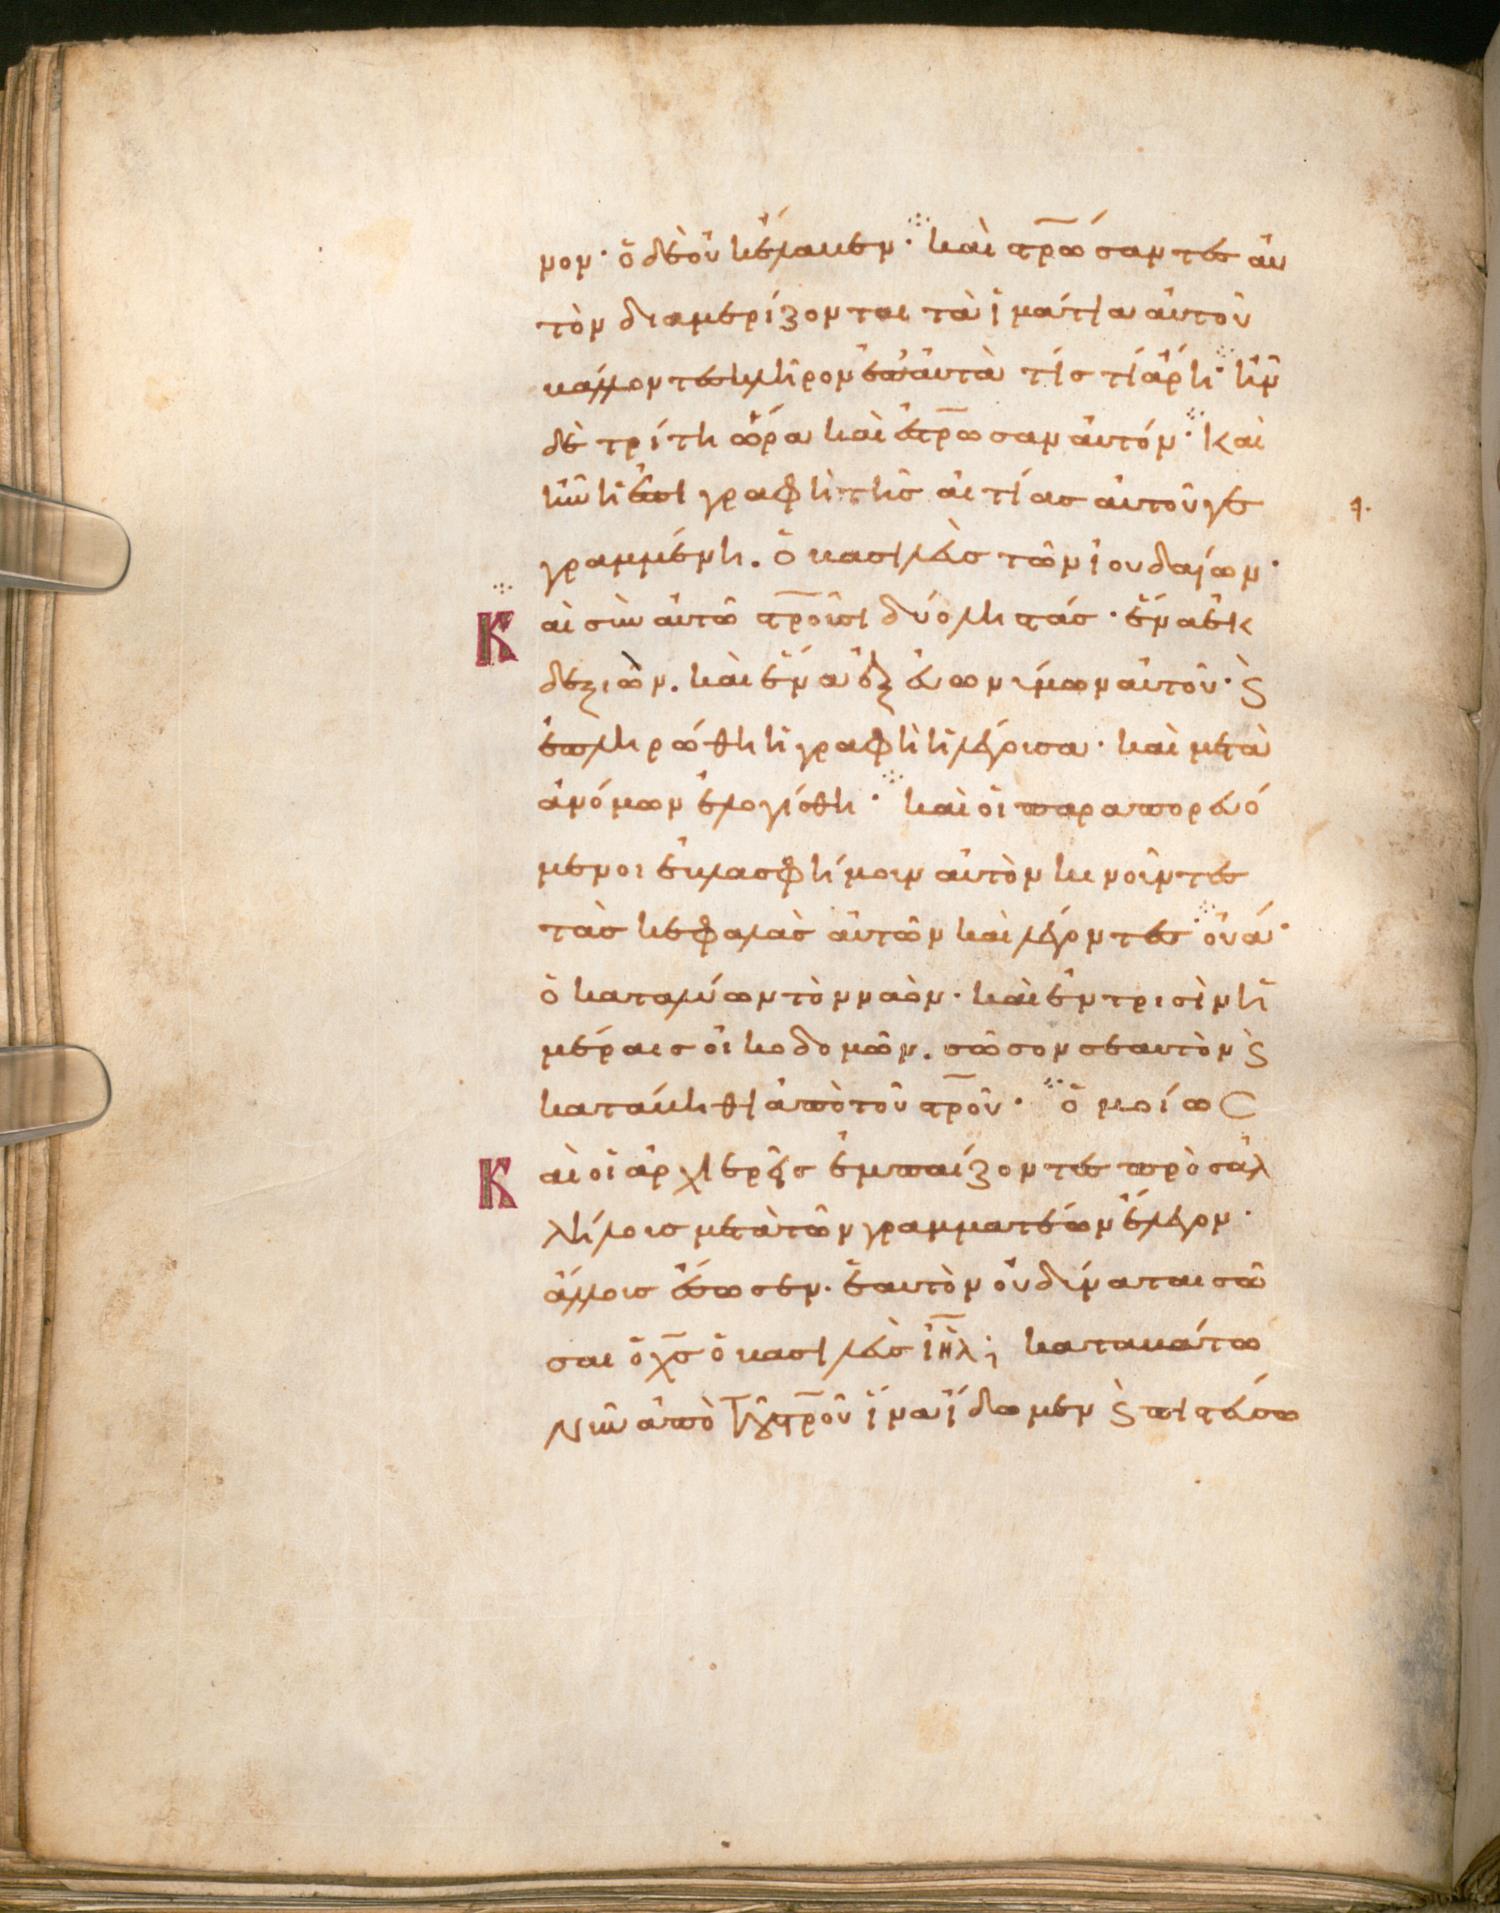 νον· ὁ δὲ οὐκ ἔλαβεν· καὶ στ̅ρωσαντες αὐ
τὸν διαμερίζονται τὰ ἱμάτια αὐτοῦ
βάλλοντες κλῆρον ἐπ' αὐτὰ τίς τί ἄρῃ· ἦν
δὲ τρίτη ὥρα καὶ ἐστ̅ρωσαν αὐτόν· Καὶ
ἦν ἡ ἐπιγραφὴ τῆς αἰτίας αὐτοῦ γε
γραμμένη. ὁ βασιλεὺς τῶν ἰουδαίων·
Καὶ σὺν αὐτῶ στ̅ροῦσι δύο ληστάς· ἕνα ἐκ
δεξιῶν. καὶ ἕνα ἐξ εὐωνύμων αὐτοῦ· ϛ̀
ἐπληρώθη ἡ γραφὴ ἡ λέγουσα· καὶ μετὰ
ἀνόμων ἐλογίσθη· καὶ οἱ παραπορευό
μενοι ἐβλασφήμουν αὐτὸν κινοῦντες
τὰς κεφαλὰς αὐτῶν καὶ λέγοντες· οὐά·
ὁ καταλύων τὸν ναὸν· καὶ ἐν τρισὶν ἡ
μέραις οἰκοδομῶν. σῶσον σεαυτὸν ϛ̀
κατάβηθι ἀπὸ τοῦ στ̅ροῦ· ὁμοίως
Καὶ οἱ ἀρχιερεῖς ἐμπαίζοντες πρὸς ἀλ
λήλους μετὰ τῶν γραμματέων ἔλεγον·
ἄλλους ἔσωσεν. ἑαυτὸν οὐ δύναται σῶ
σαι ὁ χ̅ς ὁ βασιλεὺς ἰ̅η̅λ; καταβάτω
νῦν ἀπὸ τοῦ στ̅ροῦ ἵνα ἴδωμεν ϛ̀ πιστεύσω